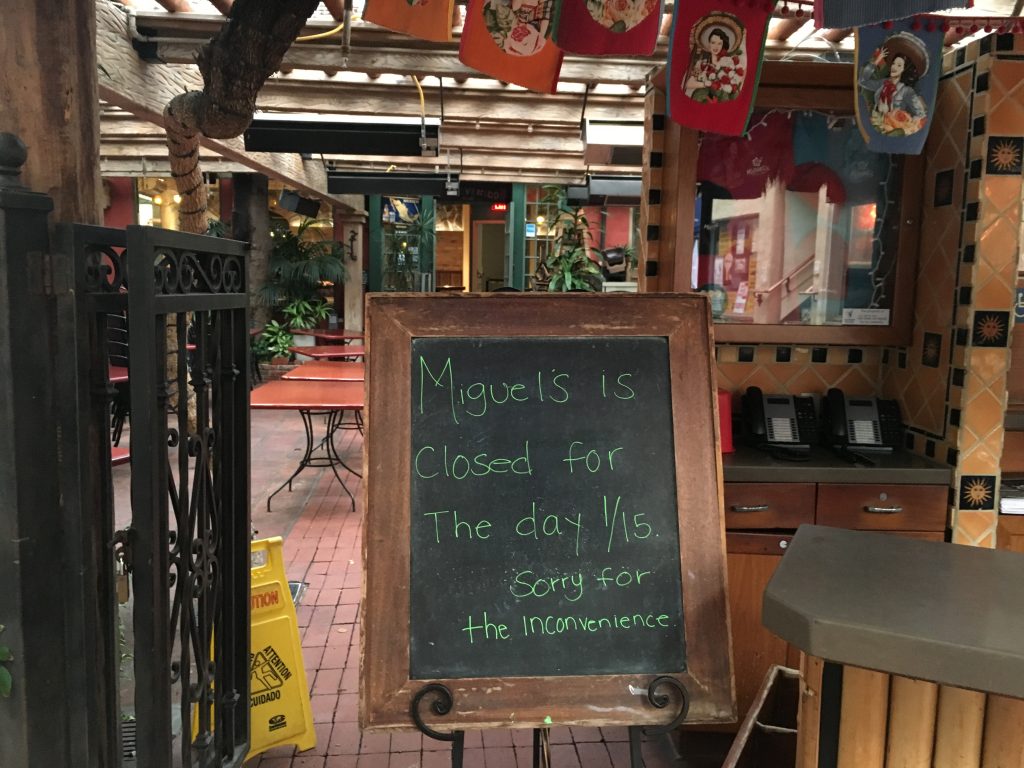 Miguel's is
Closed for
The day 1/15.
Sorry for
the inconvenience.
CUTION
ATTENTION
CUIDADO